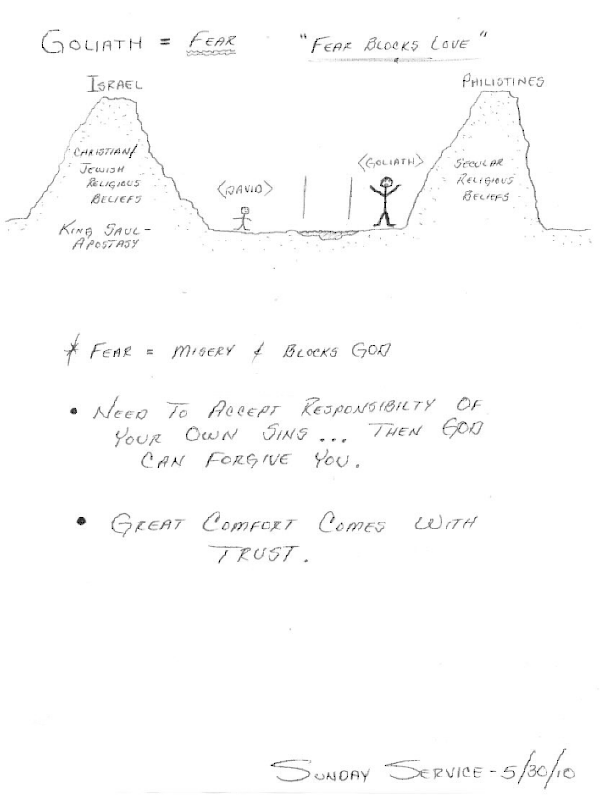 GOLIATH = FEAR "FEAR BLOCKS LOVE"
ISRAEL PHILISTINES
CHRISTIAN/
JEWISH
RELIGIOUS
BELIEFS
KING SAUL -
APOSTASY
<DAVID>
<GOLIATH>
SECULAR
RELIGIOUS
BELIEFS
* FEAR = MISERY & BLOCKS GOD
• NEED TO ACCEPT RESPONSIBILTY OF
YOUR OWN SINS ... THEN GOD
CAN FORGIVE YOU.
• GREAT COMFORT COMES WITH
TRUST.
SUNDAY SERVICE - 5/30/10